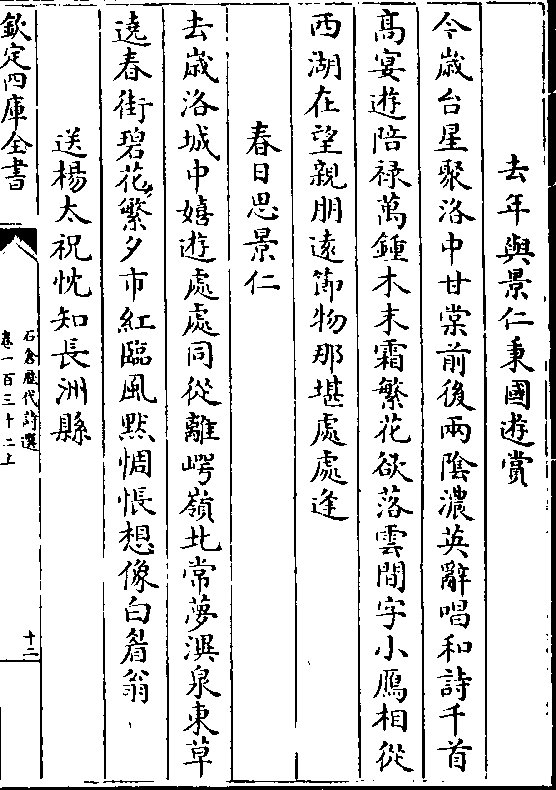 去年與景仁秉國遊賞
今歲台星聚洛中甘棠前後兩陰濃英辭唱和詩千首
高宴遊陪祿萬鍾木末霜繁花欲落雲間字小鴈相從
西湖在望親朋遠節物那堪處處逢
春日思景仁
去歲洛城中嬉遊處處同從離崿嶺北常夢潩泉東草
遶春街碧花繁夕市紅臨風黙惆悵想像白眉翁
送楊太祝忱知長洲縣
欽定四庫全書
石倉歷代詩選
卷一百三十二上
十二